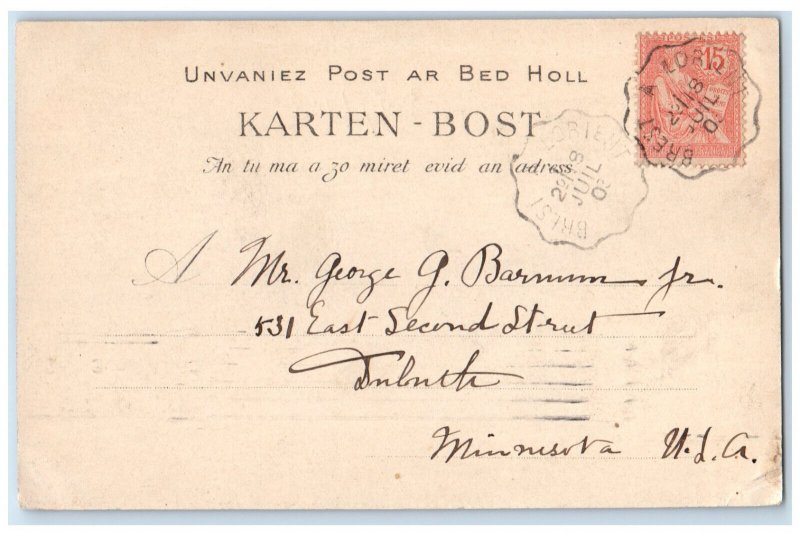 UNVANIEZ POST AR BED HOLL
KARTEN-BOST
An tu ma a zo miret evid an adress
15
LORIENT A BREST
18
JUIL
LORIENT
BREST
18
JUIL
03
A Mr. George G. Barnum Jr.
531 East Second Street
Duluth
Minnesota U.S.A.